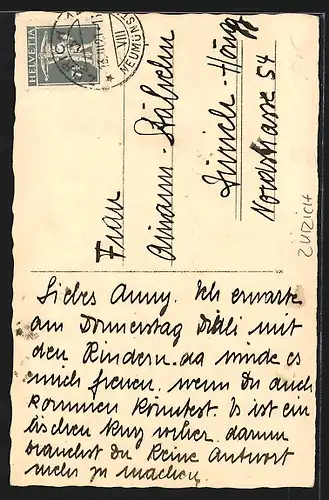 HELVETIA
ZÜRICH
VIII
NEUMÜNS
Frau
Amann-Stäheln
Zürich-Höngg
Nordstrasse 54
ZÜRICH
Liebes Anny. Ich erwarte
am Donnerstag Däli mit
den Kindern. da würde es
mich freuen, wenn Du auch
kommen könntest. Es ist ein
bischen kurz vorher, darum
brauchst du keine Antwort
mehr zu machen.